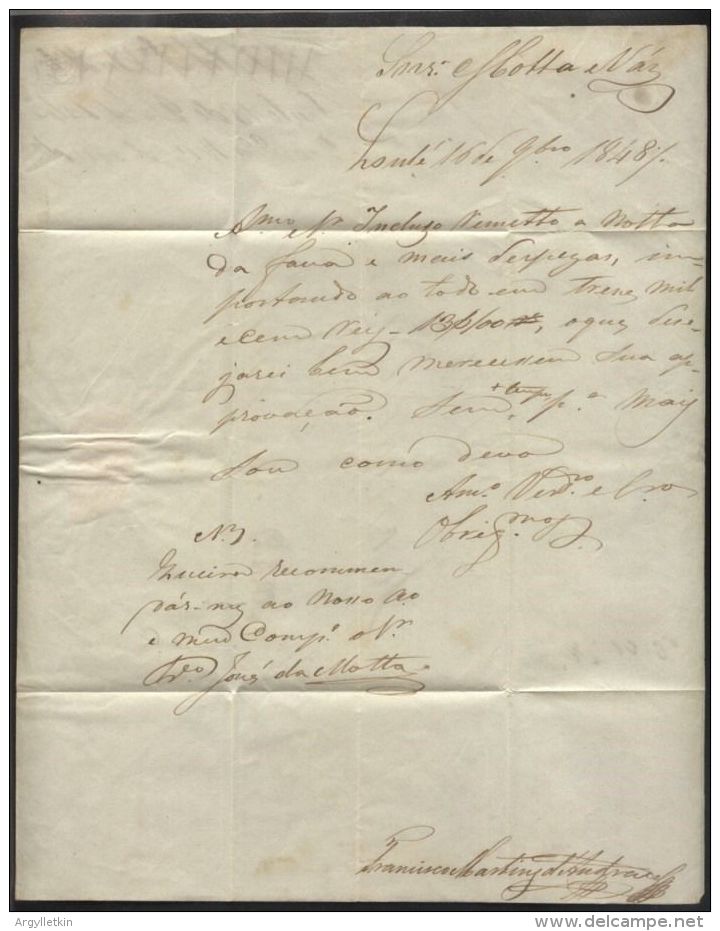 Snrs. Motta e Vaz
Loulé 16 de 9bro 1848
Amos. e Srs. Incluzo remetto a Notta
da fava e mais despezas, im-
portando ao todo em treze mil
e cem reis - 13$100 rs, o que dese-
jarei bem merecessem sua ap-
provação. Sem + tempo pa. mais
Sou como devo
Amo. Verdro. e Cro.
Obrigmo.
N3.
Queirão recommen
dár-me ao nosso Ao.
e meu Compe. o Sr.
José da Motta
Francisco Martins d'Andrade
Argylletkin
www.delcampe.net